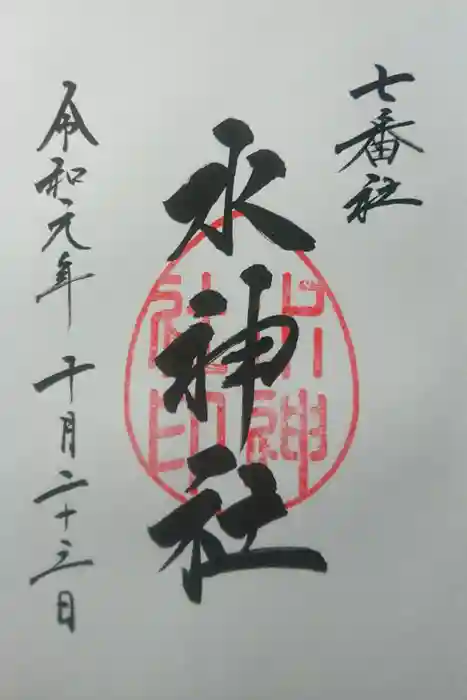 七番社
水神社
令和元年 十月二十三日